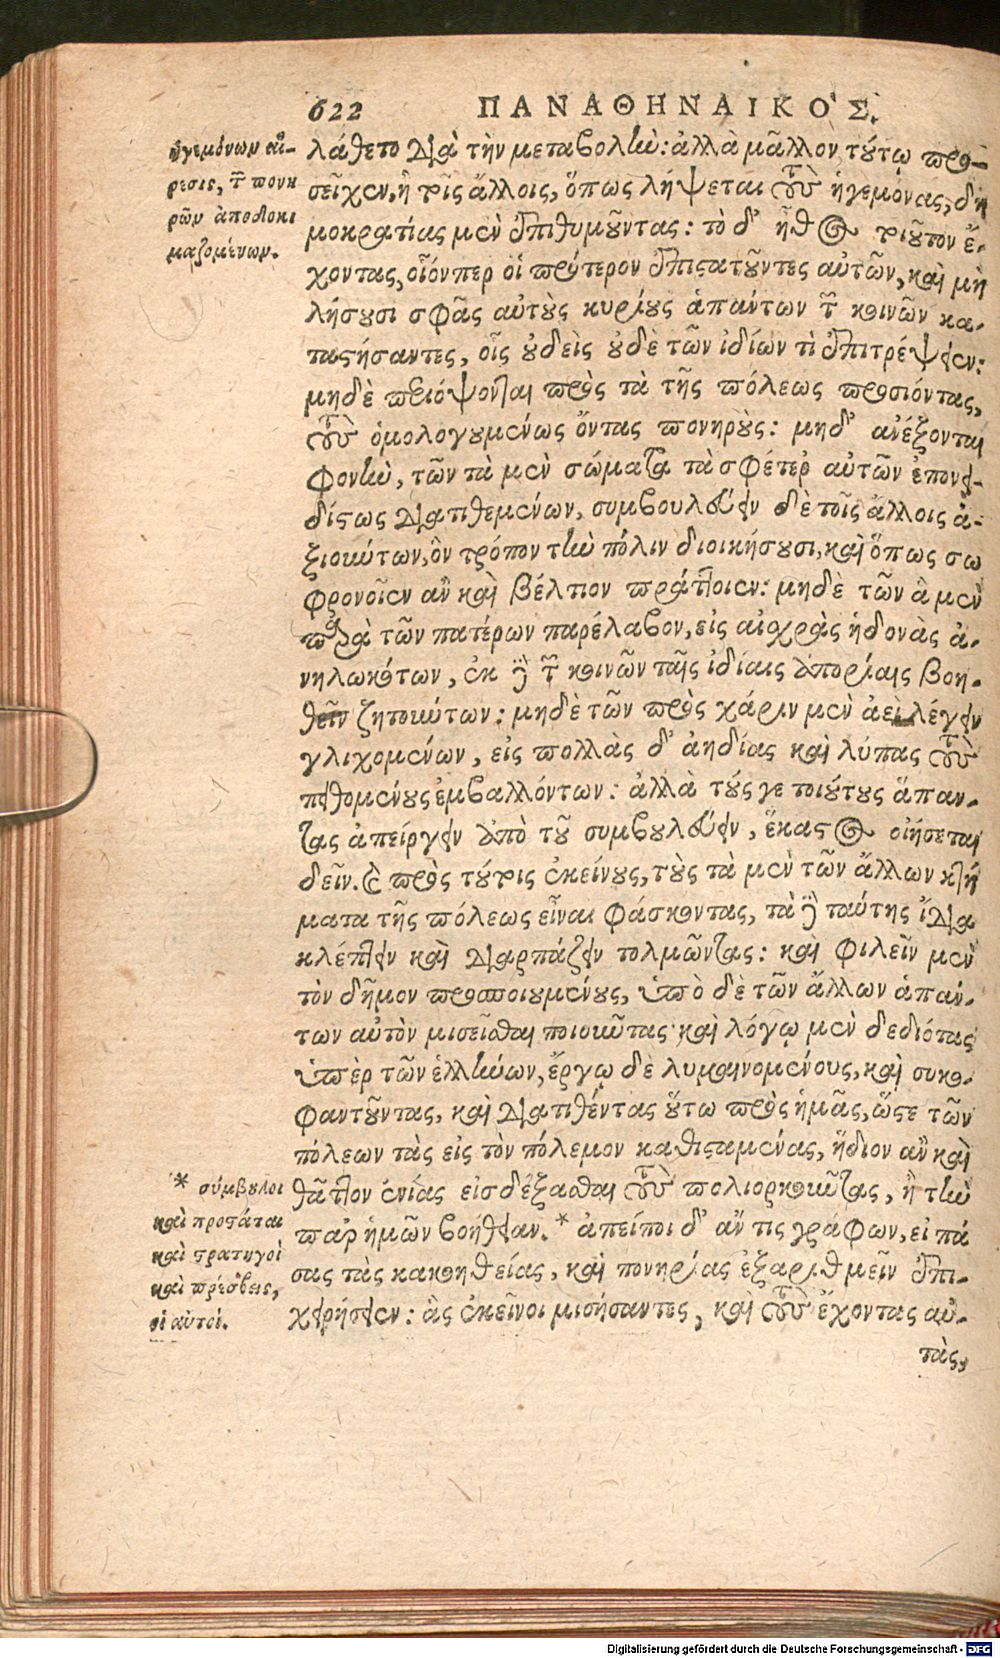 622 ΠΑΝΑΘΗΝΑΙΚΟ'Σ.
ἡγεμόνων αἵ-
ρεσις, τῶν πονη
ρῶν ἀποδοκι
μαζομένων.
λάθετο διὰ τὴν μεταβολὴν: ἀλλὰ μᾶλλον τούτῳ προ-
σεῖχεν, ἢ τοῖς ἄλλοις, ὅπως λήψεται τοὺς ἡγεμόνας, δη
μοκρατίας μὲν ἐπιθυμοῦντας: τὸ δ' ἦθος τοιοῦτον ἔ-
χοντας, οἷόνπερ οἱ πρότερον ἐπιστατοῦντες αὐτῶν, καὶ μὴ
λήσουσι σφᾶς αὐτοὺς κυρίους ἁπάντων τῶν κοινῶν κα-
ταστήσαντες, οἷς οὐδεὶς οὐδὲ τῶν ἰδίων τὶ ἐπιτρέψειεν:
μηδὲ περιόψονται πρὸς τὰ τῆς πόλεως προσιόντας,
τοὺς ὁμολογουμένως ὄντας πονηρούς: μηδ' ἀνέξονται
φωνὴν, τῶν τὰ μὲν σώματα τὰ σφέτερ αὐτῶν ἐπονει-
δίστως διατιθεμένων, συμβουλεύειν δὲ τοῖς ἄλλοις ἀ-
ξιούντων, ὃν τρόπον τὴν πόλιν διοικήσουσι, καὶ ὅπως σω
φρονοῖεν ἂν καὶ βέλτιον πράττοιεν: μηδὲ τῶν ἃ μὲν
παρὰ τῶν πατέρων παρέλαβον, εἰς αἰχρὰς ἡδονὰς ἀ-
νηλωκότων, ἐκ δὲ τῶν κοινῶν ταῖς ἰδίαις ἀπορίαις βοη-
θεῖν ζητούντων: μηδὲ τῶν πρὸς χάριν μὲν ἀεὶ λέγειν
γλιχομένων, εἰς πολλὰς δ' ἀηδίας καὶ λύπας τοὺς
πειθομένους ἐμβαλλόντων: ἀλλὰ τούς γε τοιούτους ἅπαν-
τας ἀπείργειν ἀπὸ τοῦ συμβουλεύειν, ἕκαστος οἰήσεται
δεῖν. καὶ πρὸς τούτοις ἐκείνους, τοὺς τὰ μὲν τῶν ἄλλων κτή
ματα τῆς πόλεως εἶναι φάσκοντας, τὰ δὲ ταύτης ἴδια
κλέπτειν καὶ διαρπάζειν τολμῶντας: καὶ φιλεῖν μὲν
τὸν δῆμον προσποιουμένους, ὑπὸ δὲ τῶν ἄλλων ἁπάν-
των αὐτὸν μισεῖσθαι ποιοῦντας· καὶ λόγῳ μὲν δεδιότας
ὑπὲρ τῶν ἑλλήνων, ἔργῳ δὲ λυμαινομένους, καὶ συκο-
φαντοῦντας, καὶ διατιθέντας οὕτω πρὸς ἡμᾶς, ὥστε τῶν
πόλεων τὰς εἰς τὸν πόλεμον καθισταμένας, ἥδιον ἂν καὶ
θᾶττον ἐνίας εἰσδέξασθαι τοὺς πολιορκοῦντας, ἢ τὴν
παρ ἡμῶν βοήθειαν. * ἀπείποι δ' ἄν τις γράφων, εἰ πά
σας τὰς κακοηθείας, καὶ πονηρίας ἐξαριθμεῖν ἐπι-
χειρήσειεν: ἃς ἐκεῖνοι μισήσαντες, καὶ τοὺς ἔχοντας αὐ-
τὰς,
* σύμβουλοι
καὶ προστάται
καὶ στρατηγοὶ
καὶ πρέσβεις,
οἱ αὐτοί.
Digitalisierung gefördert durch die Deutsche Forschungsgemeinschaft - DFG